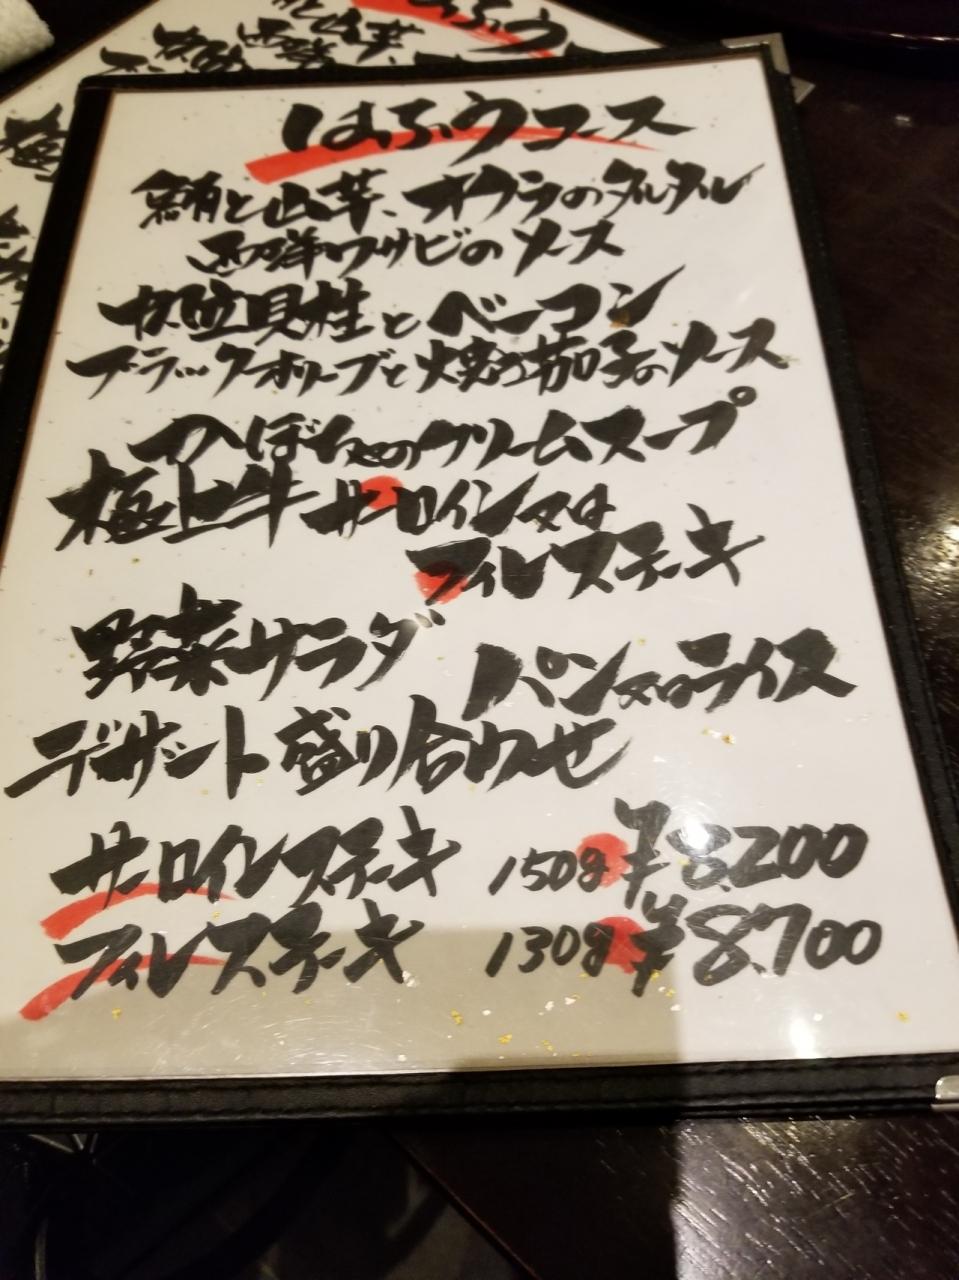 はふうコース
鮪と山芋、オクラのタルタル
西洋ワサビのソース
帆立貝柱とベーコン
ブラックオリーブと焼き茄子のソース
かぼちゃのクリームスープ
極上牛サーロイン又は
フィレステーキ
野菜サラダ
パン又はライス
デザート盛り合わせ
サーロインステーキ 150g ¥8.200
フィレステーキ 130g ¥8.700